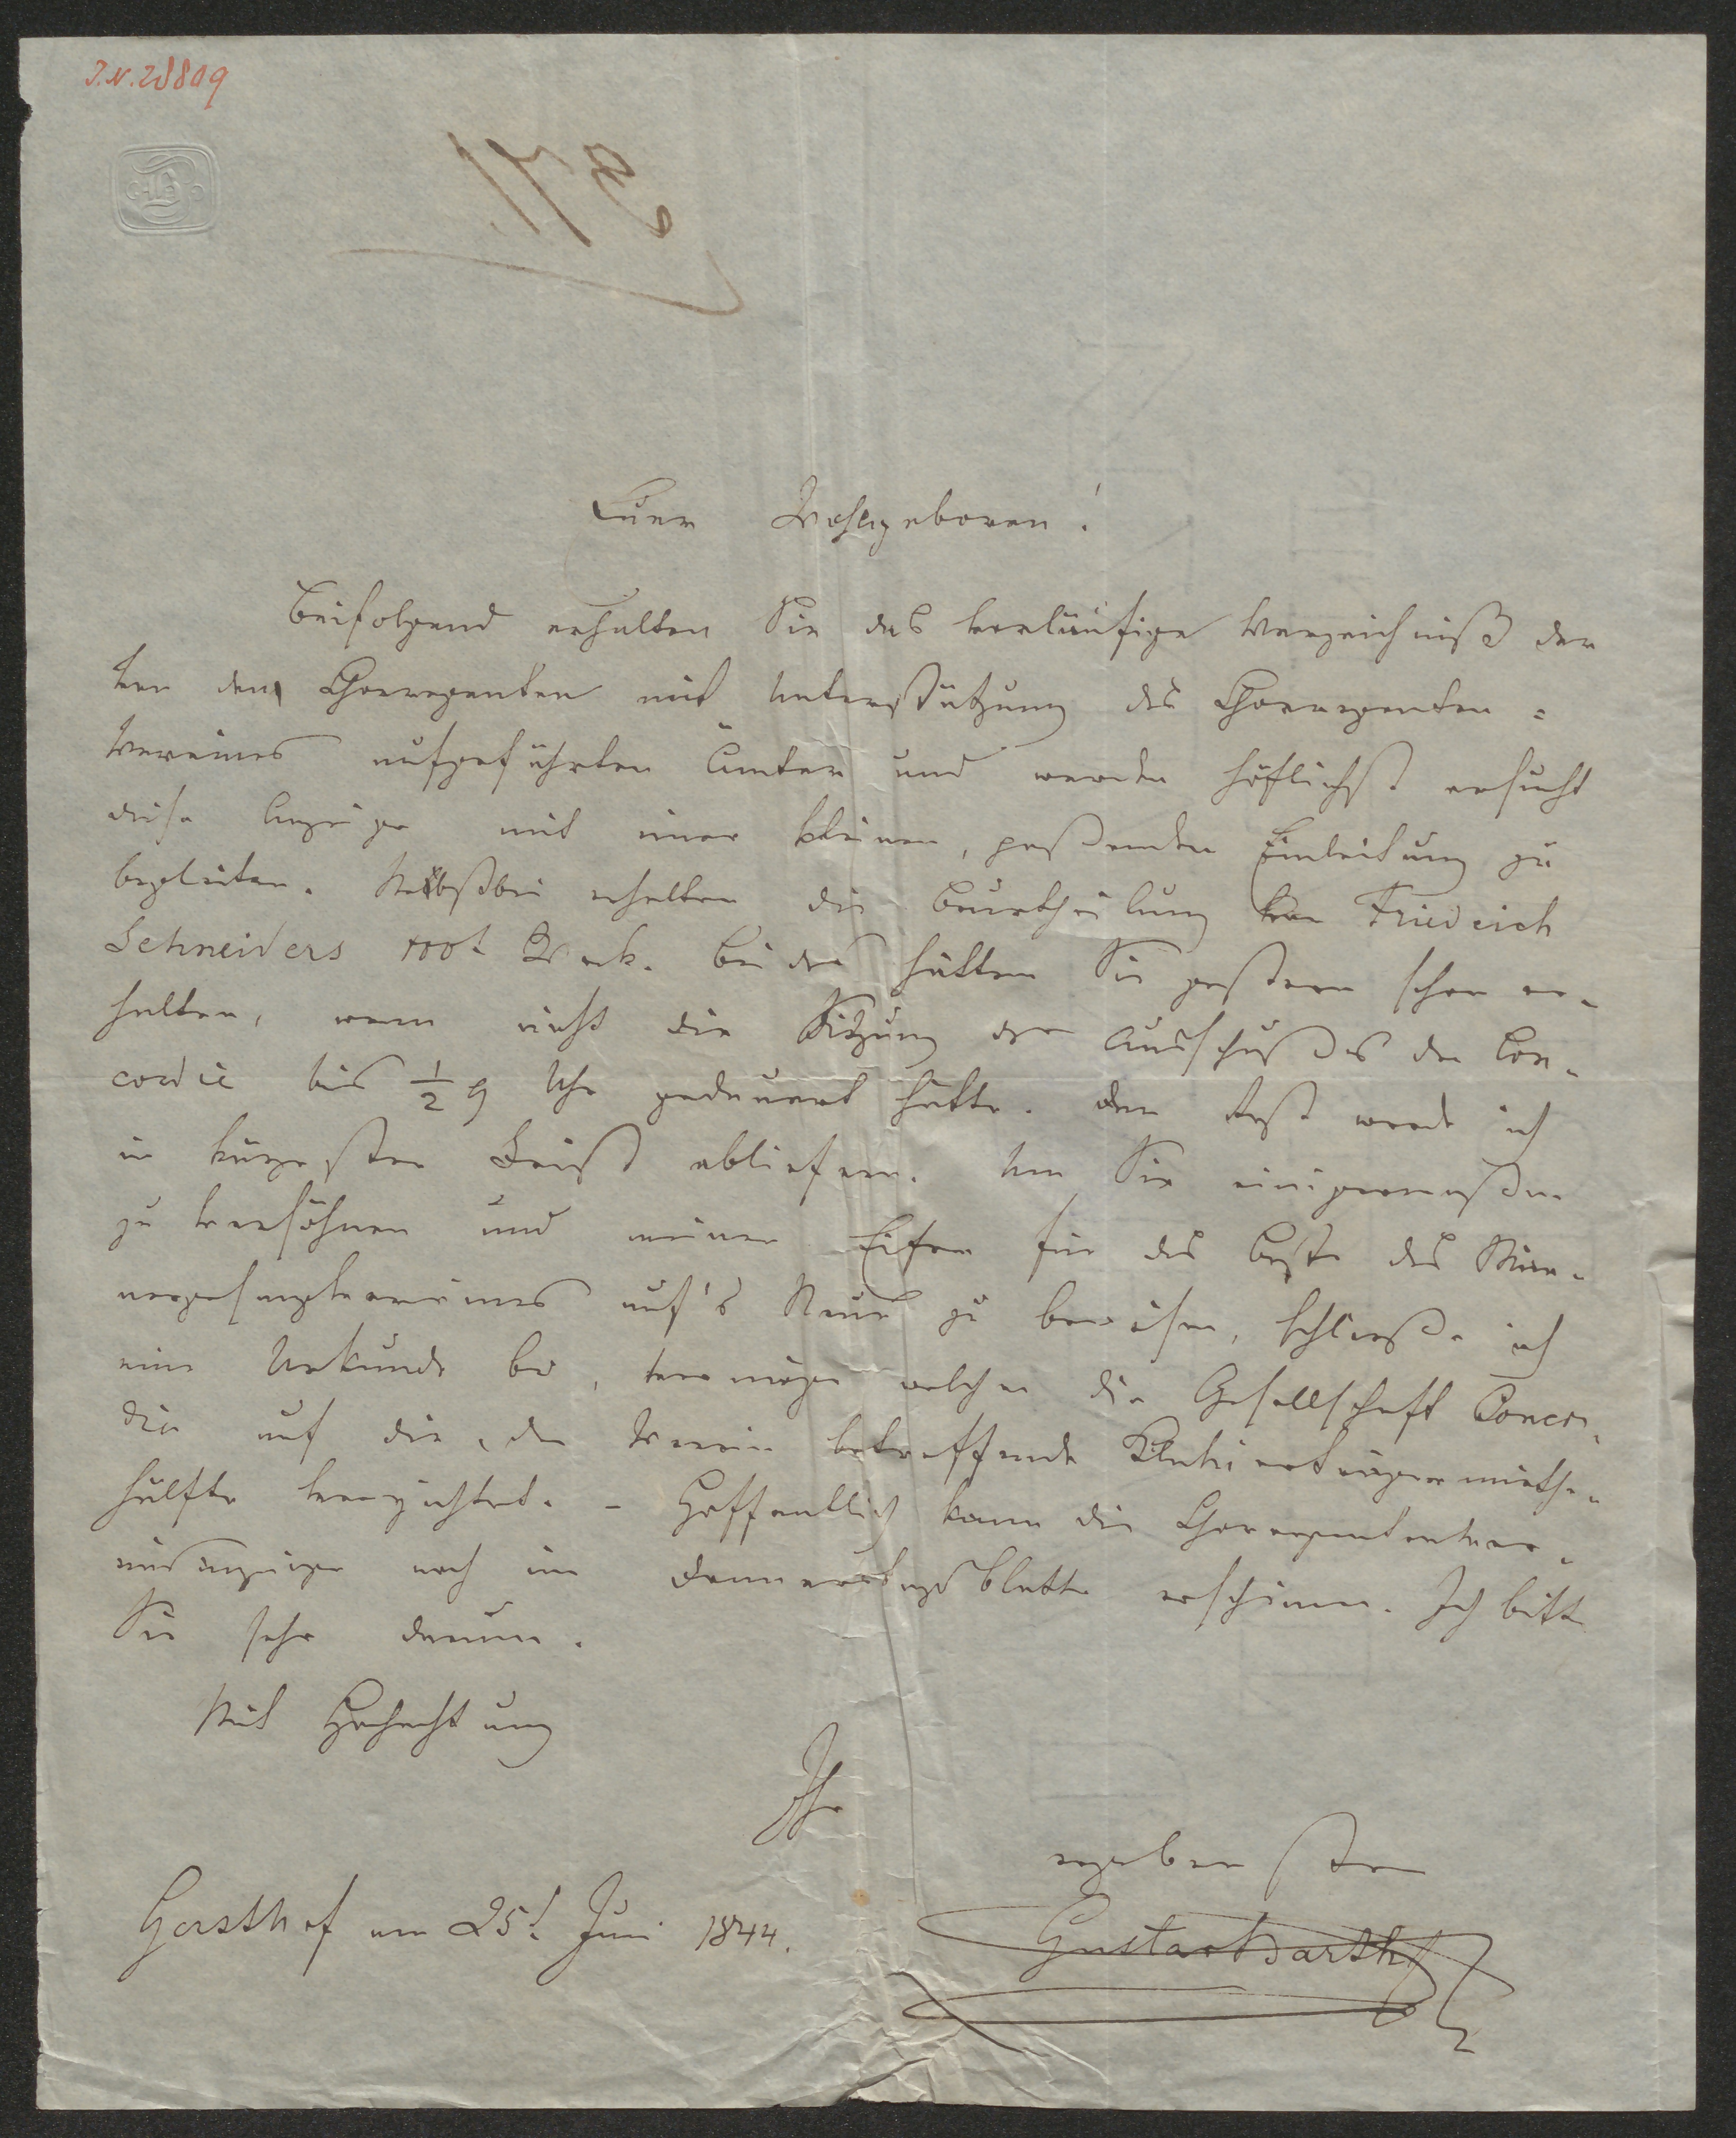 I.N. 28809
371.
Euer Wohlgeboren!
Beifolgend erhalten Sie das vorläufige Verzeichniß der
von den Chorregenten mit Unterstützung des Chorregenten=
Vereines aufgeführten Ämter und werden höflichst ersucht
diese Anzeige mit einer kleinen, passenden Einleitung zu
begleiten. Nebstbei erhalten die Beurtheilung von Friedrich
Schneiders 100t Werk. Beides hätten Sie gestern schon er=
halten, wenn nicht die Sitzung des Ausschußes der Con=
cordie bis ½ 9 Uhr gedauert hätte. Den Rest werde ich
in kürzester Frist abliefern. Um Sie einigermaßen
zu versöhnen und meinen Eifer für das Beste des Män=
nergesangvereines auf's Neue zu beweisen, schließe ich
eine Urkunde bei, vermöge welcher die Gesellschaft Concor=
die auf die, den Verein betreffende Claviertrögermiethe=
hälfte verzichtet. – Hoffentlich kann die Chorregentenver=
einsanzeige noch im Donnerstagsblatte erscheinen. Ich bitte
Sie sehr darum.
Mit Hochachtung
Ihr
ergebenster
Gersthof am 25t. Juni 1844.
Gustav Barth